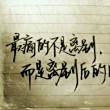 最痛的不是离别，
而是离别后的回